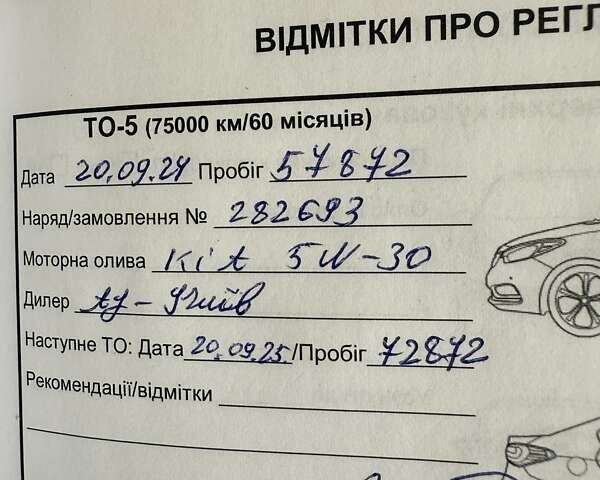 ВІДМІТКИ ПРО РЕГЛ
ТО-5 (75000 км/60 місяців)
Дата 20.09.24 Пробіг 57872
Наряд/замовлення № 282693
Моторна олива KiA 5W-30
Дилер
Наступне ТО: Дата 20.09.25/Пробіг 72872
Рекомендації/відмітки